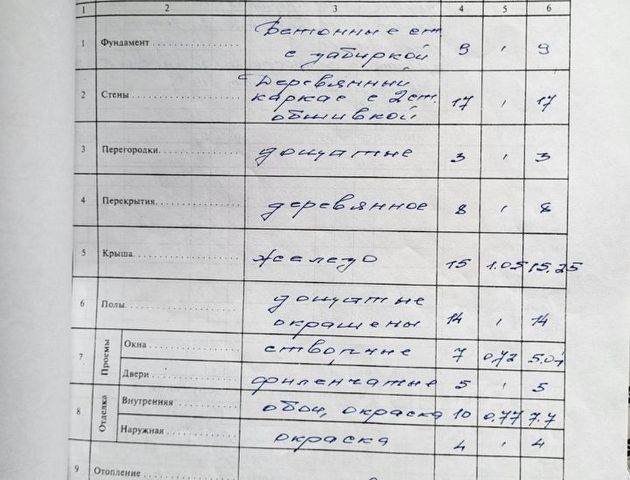 1 2 3 4 5 6
1 Фундамент Бетонные ст. с забиркой 9 1 9
2 Стены Деревянный каркас с 2ст. обшивкой 17 1 17
3 Перегородки дощатые 3 1 3
4 Перекрытия деревянное 8 1 8
5 Крыша железо 15 1.05 15.25
6 Полы дощатые окрашены 14 1 14
7 Проемы Окна створчные 7 0.72 5.04
Двери филенчатые 5 1 5
8 Отделка Внутренняя обои, окраска 10 0.77 7.7
Наружная окраска 4 1 4
9 Отопление